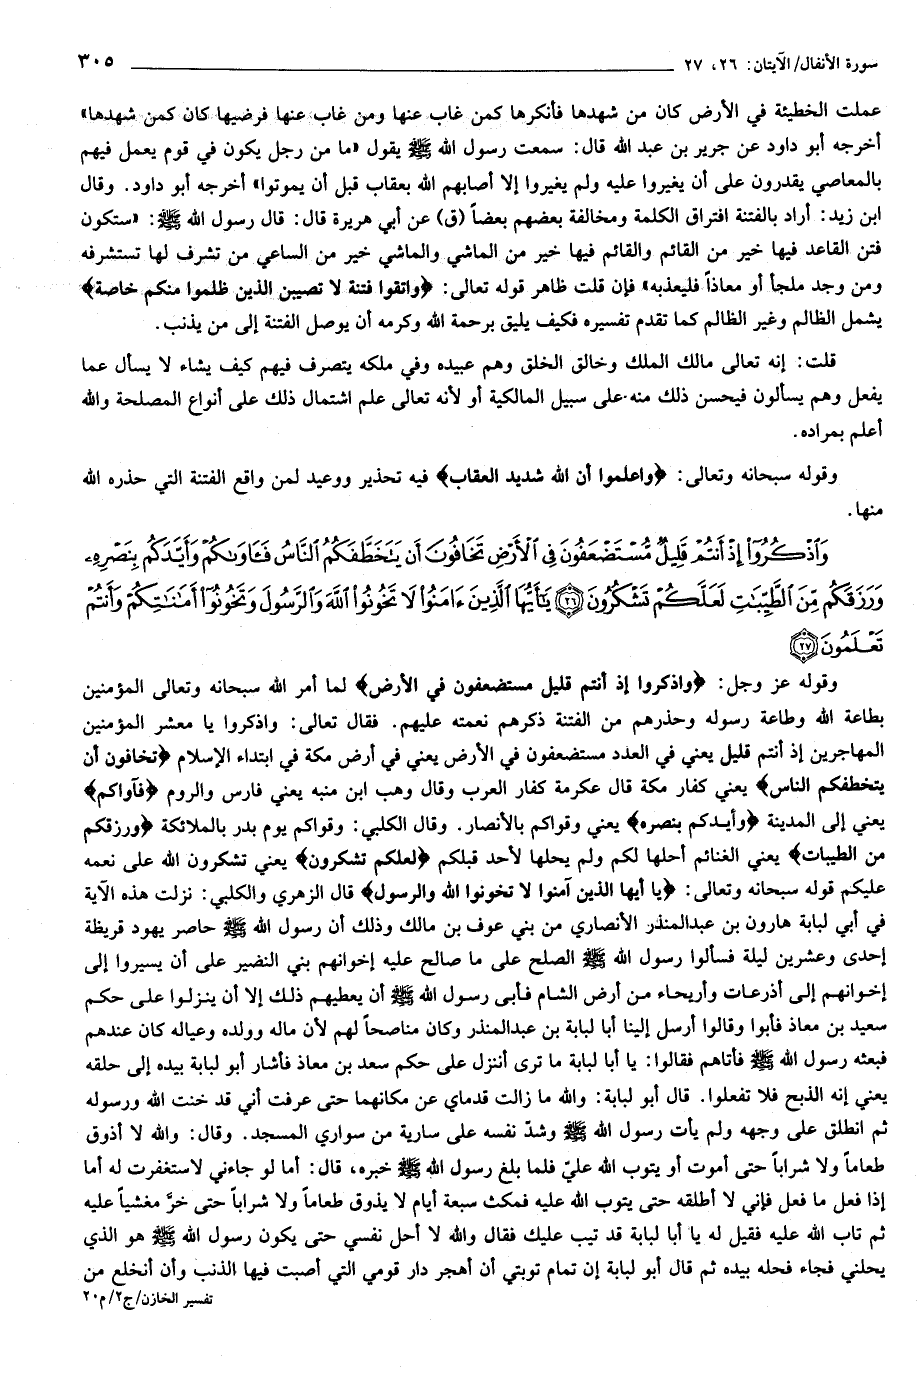 سورة الأنفال/ الآيتان: ٢٦، ٢٧ ٣٠٥
عملت الخطيئة في الأرض كان من شهدها فأنكرها كمن غاب عنها ومن غاب عنها فرضيها كان كمن شهدها»
أخرجه أبو داود عن جرير بن عبد الله قال: سمعت رسول الله ﷺ يقول «ما من رجل يكون في قوم يعمل فيهم
بالمعاصي يقدرون على أن يغيروا عليه ولم يغيروا إلا أصابهم الله بعقاب قبل أن يموتوا» أخرجه أبو داود. وقال
ابن زيد: أراد بالفتنة افتراق الكلمة ومخالفة بعضهم بعضاً (ق) عن أبي هريرة قال: قال رسول الله ﷺ: «ستكون
فتن القاعد فيها خير من القائم والقائم فيها خير من الماشي والماشي خير من الساعي من تشرف لها تستشرفه
ومن وجد ملجأ أو معاذاً فليعذبه» فإن قلت ظاهر قوله تعالى: ﴿واتقوا فتنة لا تصيبن الذين ظلموا منكم خاصة﴾
يشمل الظالم وغير الظالم كما تقدم تفسيره فكيف يليق برحمة الله وكرمه أن يوصل الفتنة إلى من يذنب.
قلت: إنه تعالى مالك الملك وخالق الخلق وهم عبيده وفي ملكه يتصرف فيهم كيف يشاء لا يسأل عما
يفعل وهم يسألون فيحسن ذلك منه على سبيل المالكية أو لأنه تعالى علم اشتمال ذلك على أنواع المصلحة والله
أعلم بمراده.
وقوله سبحانه وتعالى: ﴿واعلموا أن الله شديد العقاب﴾ فيه تحذير ووعيد لمن واقع الفتنة التي حذره الله
منها.
وَاذْكُرُوٓا إِذْ أَنتُمْ قَلِيلٌ مُّسْتَضْعَفُونَ فِى الْأَرْضِ تَخَافُونَ أَن يَتَخَطَّفَكُمُ النَّاسُ فَـَٔاوَىٰكُمْ وَأَيَّدَكُم بِنَصْرِهِۦ
وَرَزَقَكُم مِّنَ الطَّيِّبَـٰتِ لَعَلَّكُمْ تَشْكُرُونَ ٢٦ يَـٰٓأَيُّهَا الَّذِينَ ءَامَنُوا لَا تَخُونُوا اللَّهَ وَالرَّسُولَ وَتَخُونُوٓا أَمَـٰنَـٰتِكُمْ وَأَنتُمْ
تَعْلَمُونَ ٢٧
وقوله عز وجل: ﴿واذكروا إذ أنتم قليل مستضعفون في الأرض﴾ لما أمر الله سبحانه وتعالى المؤمنين
بطاعة الله وطاعة رسوله وحذرهم من الفتنة ذكرهم نعمته عليهم. فقال تعالى: واذكروا يا معشر المؤمنين
المهاجرين إذ أنتم قليل يعني في العدد مستضعفون في الأرض يعني في أرض مكة في ابتداء الإسلام ﴿تخافون أن
يتخطفكم الناس﴾ يعني كفار مكة قال عكرمة كفار العرب وقال وهب ابن منبه يعني فارس والروم ﴿فآواكم﴾
يعني إلى المدينة ﴿وأيدكم بنصره﴾ يعني وقواكم بالأنصار. وقال الكلبي: وقواكم يوم بدر بالملائكة ﴿ورزقكم
من الطيبات﴾ يعني الغنائم أحلها لكم ولم يحلها لأحد قبلكم ﴿لعلكم تشكرون﴾ يعني تشكرون الله على نعمه
عليكم قوله سبحانه وتعالى: ﴿يا أيها الذين آمنوا لا تخونوا الله والرسول﴾ قال الزهري والكلبي: نزلت هذه الآية
في أبي لبابة هارون بن عبدالمنذر الأنصاري من بني عوف بن مالك وذلك أن رسول الله ﷺ حاصر يهود قريظة
إحدى وعشرين ليلة فسألوا رسول الله ﷺ الصلح على ما صالح عليه إخوانهم بني النضير على أن يسيروا إلى
إخوانهم إلى أذرعات وأريحاء من أرض الشام فأبى رسول الله ﷺ أن يعطيهم ذلك إلا أن ينزلوا على حكم
سعيد بن معاذ فأبوا وقالوا أرسل إلينا أبا لبابة بن عبدالمنذر وكان مناصحاً لهم لأن ماله وولده وعياله كان عندهم
فبعثه رسول الله ﷺ فأتاهم فقالوا: يا أبا لبابة ما ترى أننزل على حكم سعد بن معاذ فأشار أبو لبابة بيده إلى حلقه
يعني إنه الذبح فلا تفعلوا. قال أبو لبابة: والله ما زالت قدماي عن مكانهما حتى عرفت أني قد خنت الله ورسوله
ثم انطلق على وجهه ولم يأت رسول الله ﷺ وشدّ نفسه على سارية من سواري المسجد. وقال: والله لا أذوق
طعاماً ولا شراباً حتى أموت أو يتوب الله عليّ فلما بلغ رسول الله ﷺ خبره، قال: أما لو جاءني لاستغفرت له أما
إذا فعل ما فعل فإني لا أطلقه حتى يتوب الله عليه فمكث سبعة أيام لا يذوق طعاماً ولا شراباً حتى خرَّ مغشياً عليه
ثم تاب الله عليه فقيل له يا أبا لبابة قد تيب عليك فقال والله لا أحل نفسي حتى يكون رسول الله ﷺ هو الذي
يحلني فجاء فحله بيده ثم قال أبو لبابة إن تمام توبتي أن أهجر دار قومي التي أصبت فيها الذنب وأن أنخلع من
تفسير الخازن/ج٢/م٢٠